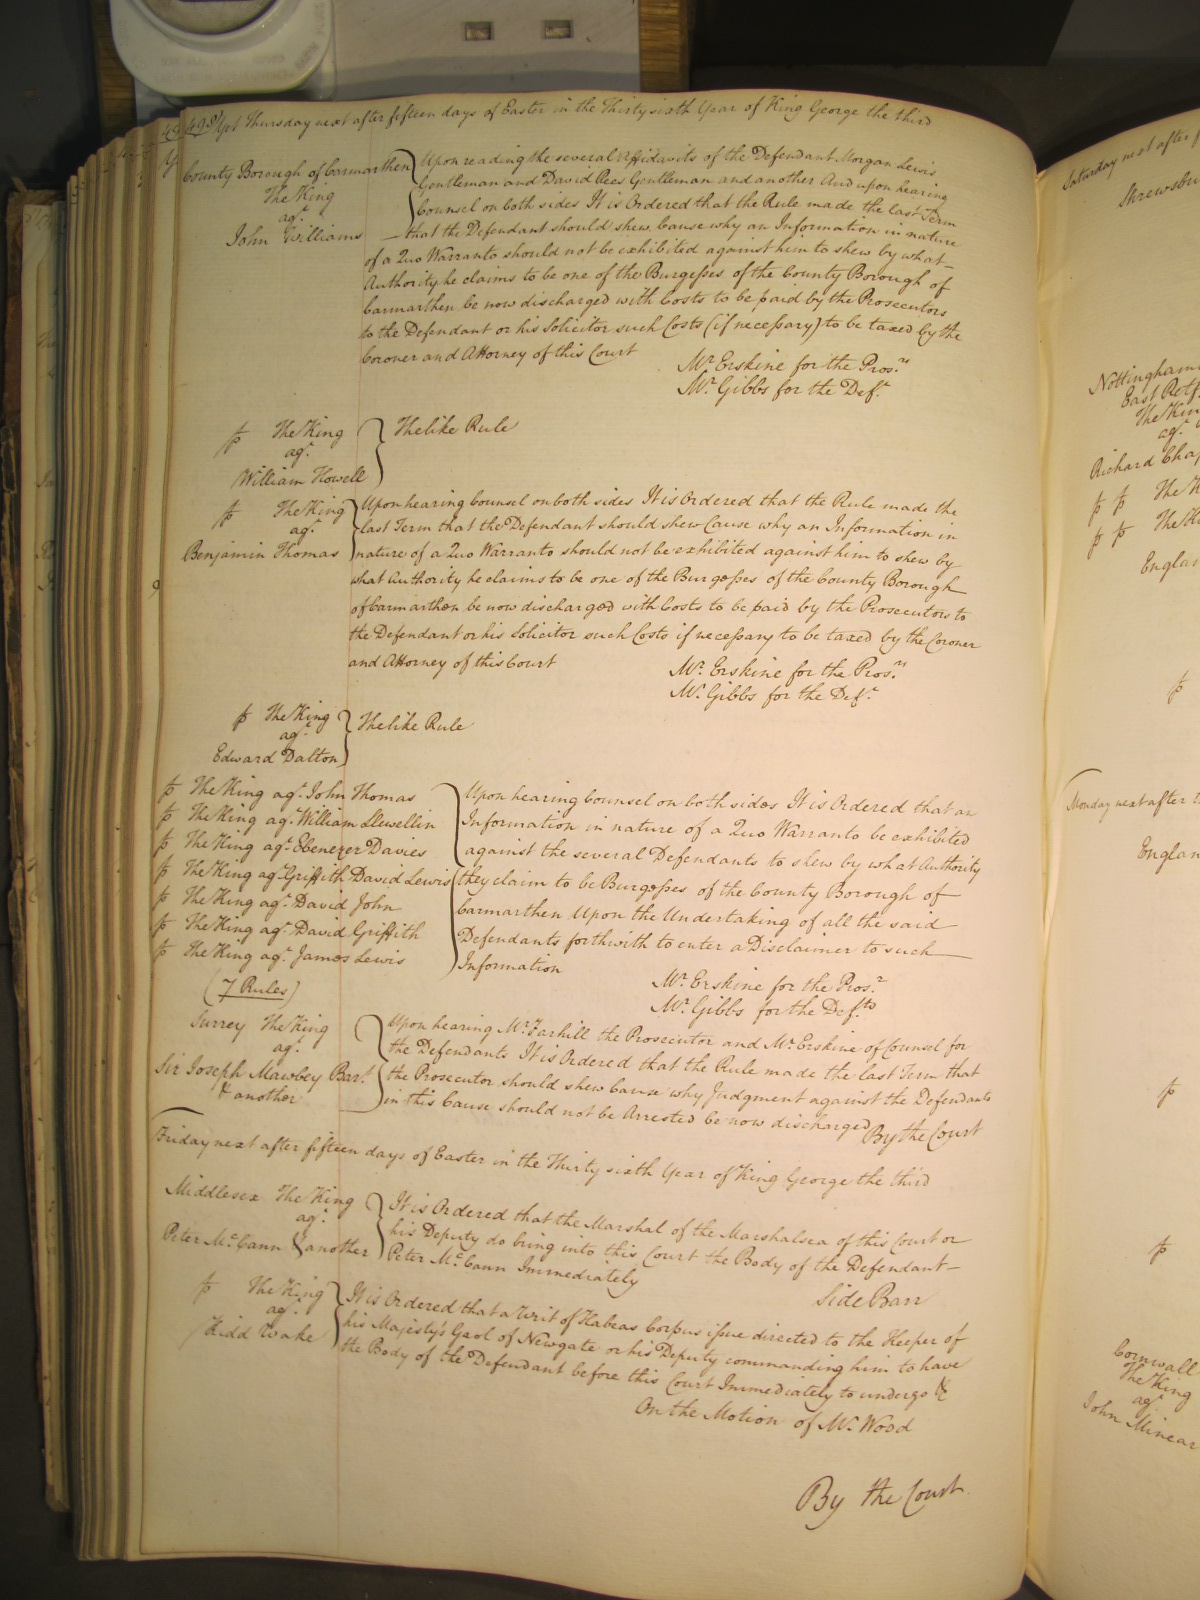 498 Yet Thursday next after fifteen days of Easter in the Thirty sixth Year of King George the third
County Borough of Carmarthen
The King
agt.
John Williams
Upon reading the several Affidavits of the Defendant Morgan Lewis
Gentleman and David Rees Gentleman and another And upon hearing
Counsel on both sides It is Ordered that the Rule made the last Term
that the Defendant should shew Cause why an Information in nature
of a Quo Warranto should not be exhibited against him to shew by what
Authority he claims to be one of the Burgesses of the County Borough of
Carmarthen be now discharged with Costs to be paid by the Prosecutors
to the Defendant or his Solicitor such Costs (if necessary) to be taxed by the
Coroner and Attorney of this Court
Mr. Erskine for the Pros.rs
Mr. Gibbs for the Deft.
The King
agt.
William Howell
The like Rule
The King
agt.
Benjamin Thomas
Upon hearing Counsel on both sides It is Ordered that the Rule made the
last Term that the Defendant should shew Cause why an Information in
nature of a Quo Warranto should not be exhibited against him to shew by
what Authority he claims to be one of the Burgesses of the County Borough
of Carmarthen be now discharged with Costs to be paid by the Prosecutors to
the Defendant or his Solicitor such Costs if necessary to be taxed by the Coroner
and Attorney of this Court
Mr. Erskine for the Pros.rs
Mr. Gibbs for the Deft.
The King
agt.
Edward Dalton
The like Rule
The King agt. John Thomas
The King agt. William Llewellin
The King agt. Ebenezer Davies
The King agt. Griffith David Lewis
The King agt. David John
The King agt. David Griffith
The King agt. James Lewis
(7 Rules)
Upon hearing Counsel on both sides It is Ordered that an
Information in nature of a Quo Warranto be exhibited
against the several Defendants to shew by what Authority
they claim to be Burgesses of the County Borough of
Carmarthen Upon the Undertaking of all the said
Defendants forthwith to enter a Disclaimer to such
Information
Mr. Erskine for the Pros.r
Mr. Gibbs for the Defts.
Surrey The King
agt.
Sir Joseph Mawbey Bart.
& another
Upon hearing Mr. the Prosecutor and Mr. Erskine of Counsel for
the Defendants It is Ordered that the Rule made the last Term that
the Prosecutor should shew Cause why Judgment against the Defendants
in this Cause should not be Arrested be now discharged
By the Court
Friday next after fifteen days of Easter in the Thirty sixth Year of King George the third
Middlesex The King
agt.
Peter McCann & another
It is Ordered that the Marshal of the Marshalsea of this Court or
his Deputy do bring into this Court the Body of the Defendant
Peter McCann Immediately
Side Barr
The King
agt.
Kidd Wake
It is Ordered that a Writ of Habeas Corpus issue directed to the Keeper of
his Majesty's Gaol of Newgate or his Deputy commanding him to have
the Body of the Defendant before this Court Immediately to undergo &c
On the Motion of Mr. Wood
By the Court
Saturday next after
Shrewsbu
Nottingham
East Retf
The Kin
agt.
Richard Chap
The K
The K
Englan
Monday next after
Englan
Cornwall
The King
agt.
John Minear